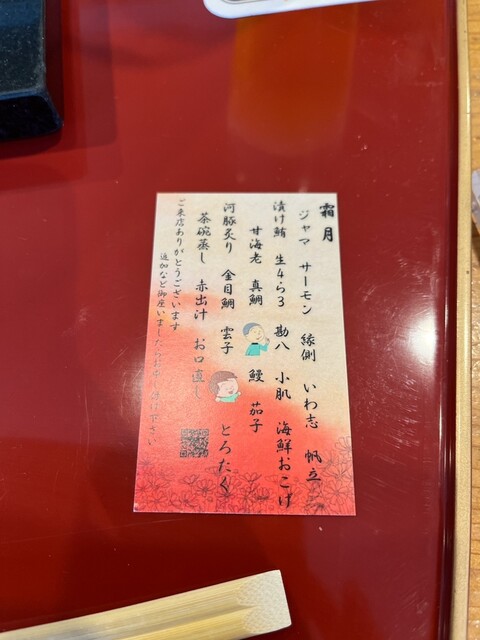 霜月
ジャマ サーモン 縁側 いわ志 帆立
漬け鮪 生4ら3 勘八 小肌 海鮮おこげ
甘海老 真鯛 鰻 茄子
河豚炙り 金目鯛 雲子 とろたく
茶碗蒸し 赤出汁 お口直し
ご来店ありがとうございます
追加など御座いましたらお申し付け下さい